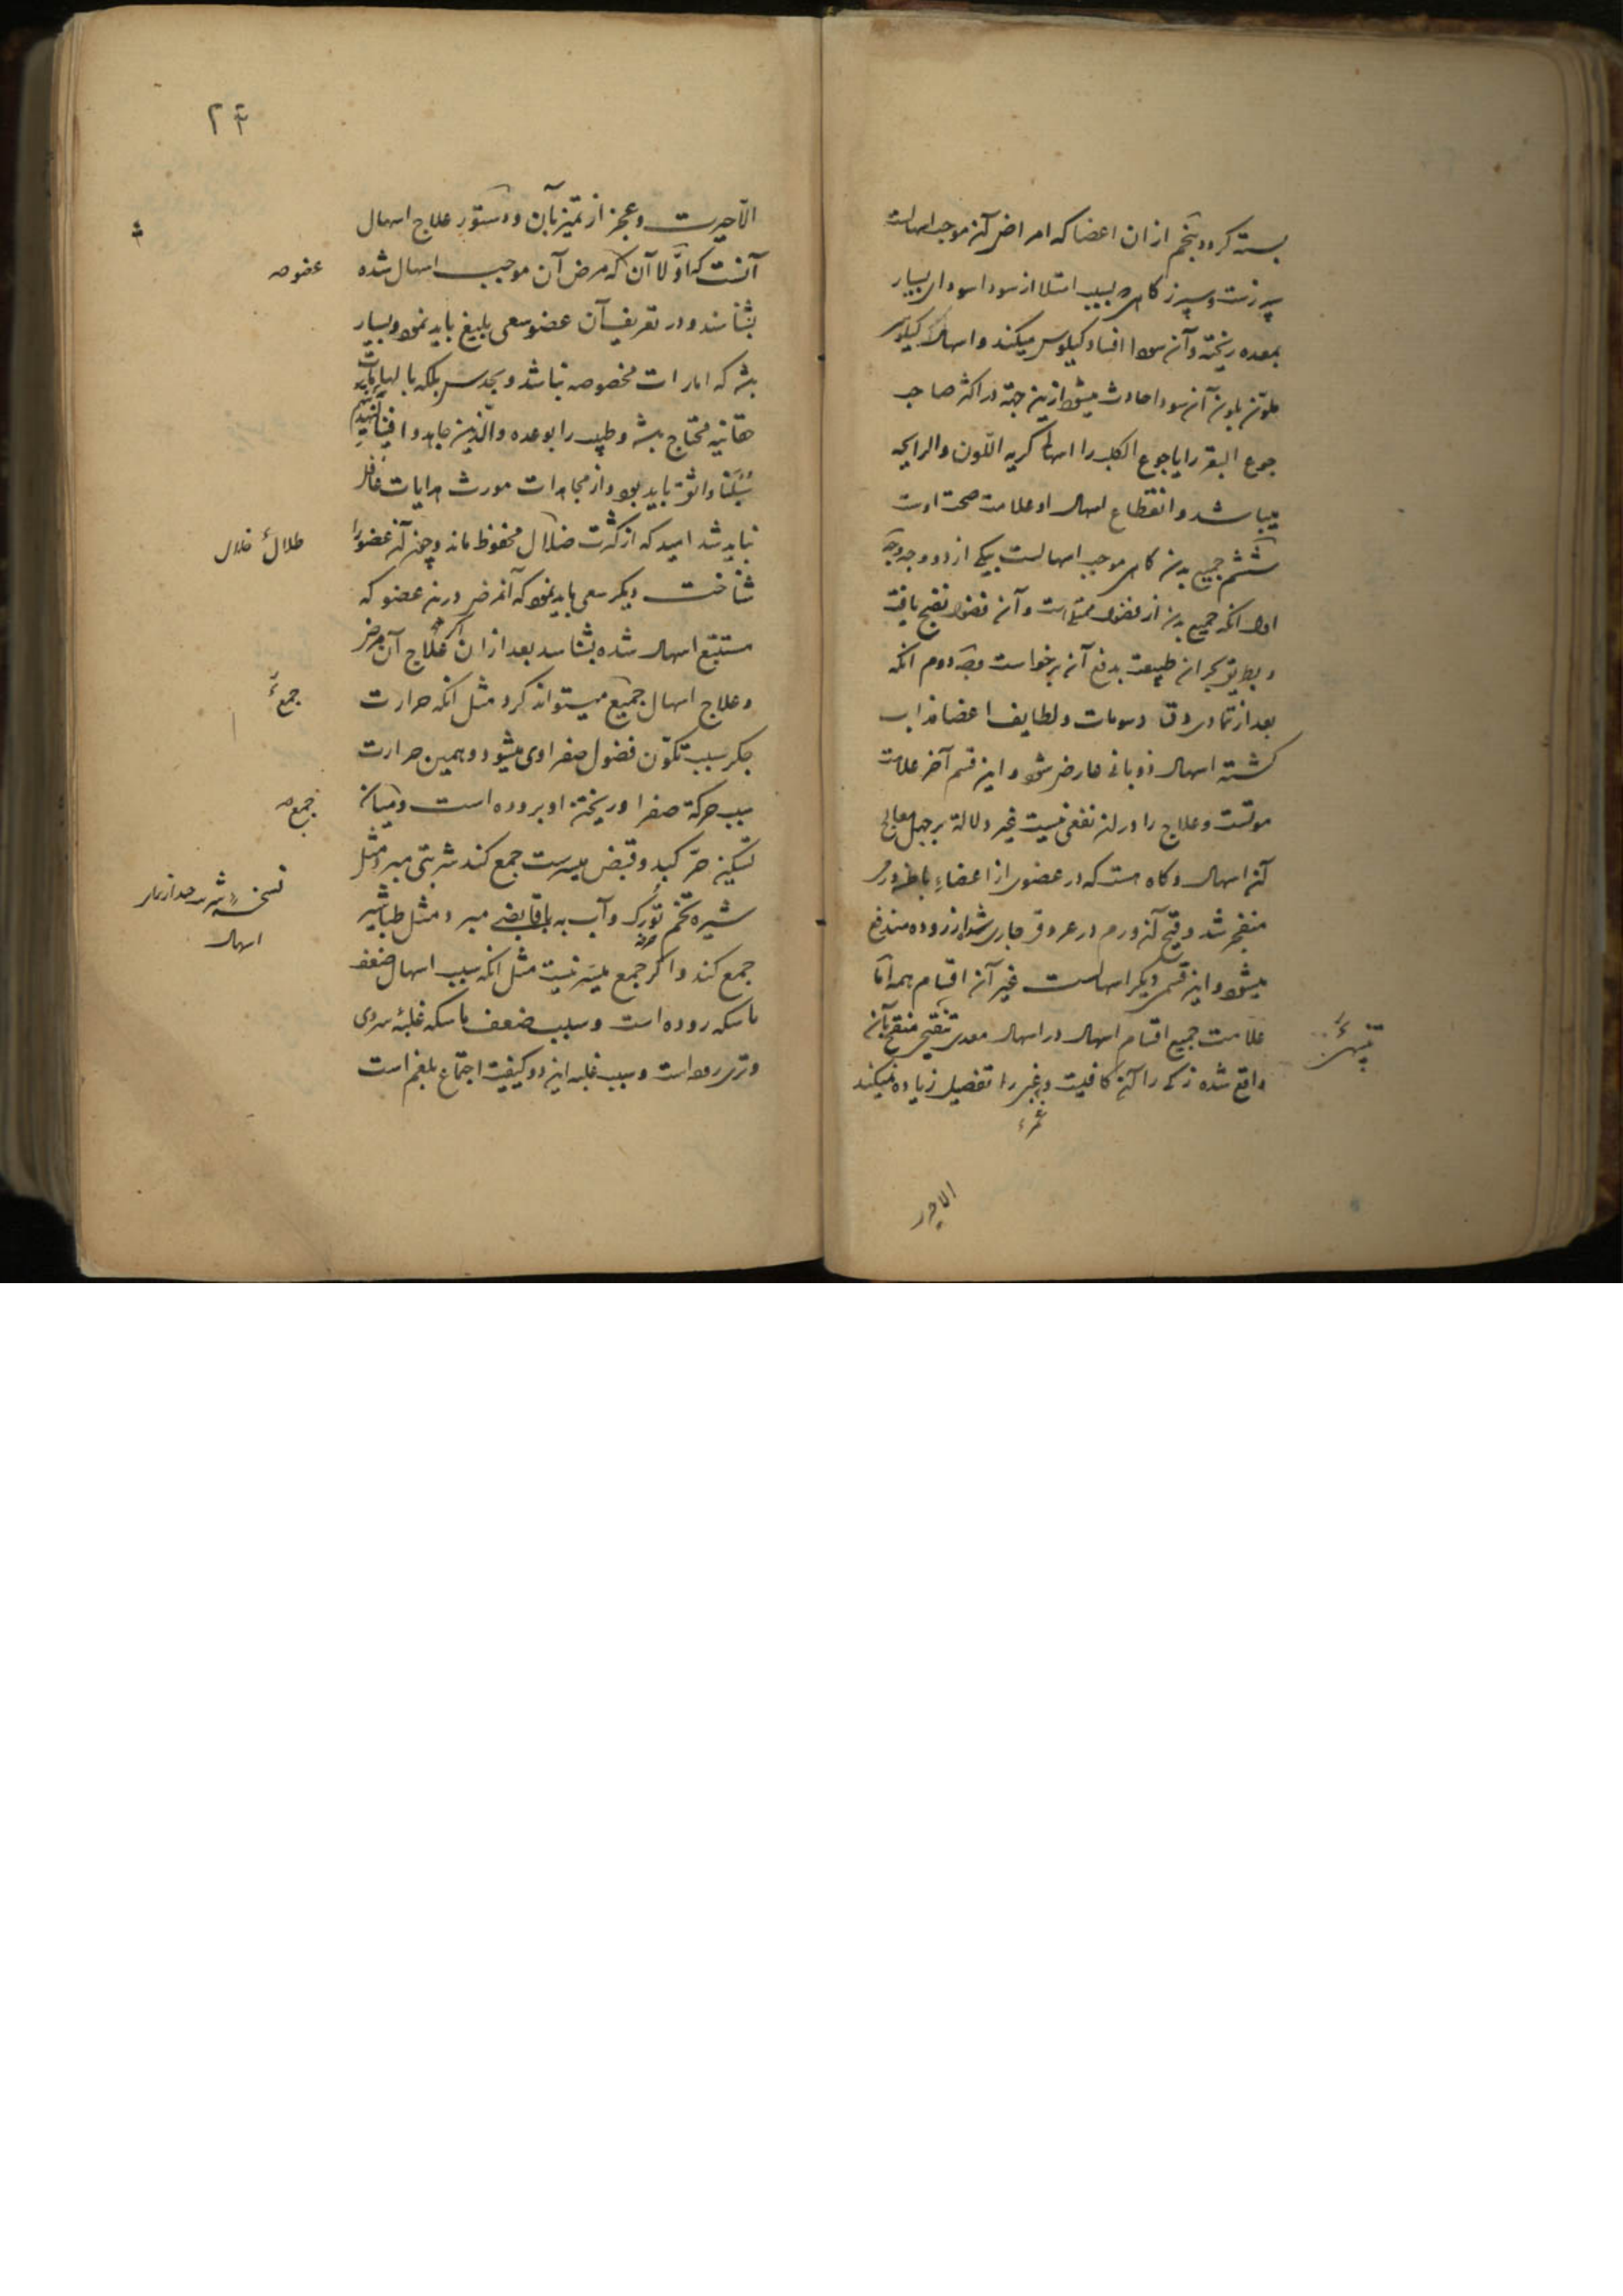 بسته کردد پنجم ازان اعضا که امراض آن موجب اسهالست
سپرزست و سپرز کاهی بسبب امتلا از سودا سودای بسیار
بمعده ریخته و آن سودا افساد کیلوس میکند و اسهال کیلوسی
ملون بلون آن سودا حادث میشود ازین جهة در اکثر صاحب
جوع البقر را یا جوع الکلب را اسهال کریه اللون والرایحه
میباشد و انقطاع اسهال او علامت صحت اوست
ششم جمیع بدن کاهی موجب اسهالست بیکی از دو وجه وجه
اول انکه جمیع بدن از فضول ممتلی است و آن فضول نضج یافت
و بطریق بحران طبیعت بدفع آن برخواست وجه دوم انکه
بعد از تمادی دق دسومات و لطایف اعضا مذاب
کشته اسهال ذوبانی عارض شود و این قسم آخر علامت
موتست و علاج را در ان نفعی نیست غیر دلالة بر جهل معالج
آن اسهال و کاه هست که در عضوی از اعضاء باطن ورمی
منفجر شد و قیح آن ورم در عروق جاری شد از روده مندفع
میشود و این قسمی دیکر اسهالست غیر آن اقسام همه اما
علامت جمیع اقسام اسهال در اسهال معدی تنقیح منقح بآن
واقع شده زکی را آن کافیست و غبی را تفصیل زیاده نمیکند
تنبیهیء
الاحیر
۲۴
الا حیرت و عجز از تمیز بآن و دستور علاج اسهال
آنست که اولا آن که مرض آن موجب اسهال شده
بشناسند و در تعریف آن عضو سعی بلیغ باید نمود و بسیار
بشد که امارات مخصوصه نباشد و بحدس بلکه بالهامات
حقانیه محتاج بشد و طبیب را بوعده والذین جاهدوا فینا لنهدینهم
سبلنا واثق باید بود و از مجاهدات مورث هدایات غافل
نباید شد امید که از کثرت ضلال محفوظ ماند و چون آن عضو را
شناخت دیکر سعی باید نمود که آن مرض در ین عضو که
مستتبع اسهال شده بشناسد بعد ازان اکر علاج آن مرض
و علاج اسهال جمیع میتواند کرد مثل انکه حرارت
جکر سبب تکون فضول صفراوی میشود و همین حرارت
سبب حرکة صفرا و ریختن او بروده است و میانه
تسکین حر کبد و قبض میسرست جمع کند شربتی مبرد مثل
شیره تخم تورک و آب به با قابضی مبرد مثل طباشیر
جمع کند و اکر جمع میسر نیست مثل انکه سبب اسهال ضعف
ماسکه روده است و سبب ضعف ماسکه غلبهٔ سردی
و تری روده است و سبب غلبه این دو کیفیت اجتماع بلغم است
عضوصه
جمعء
جمعصه
اسهال